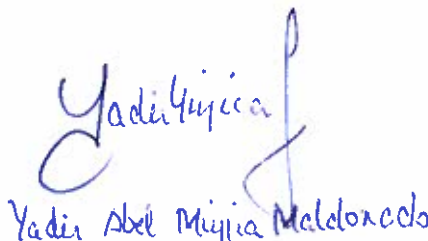 Yadir Mijia
Yadir Abel Mijia Maldonado